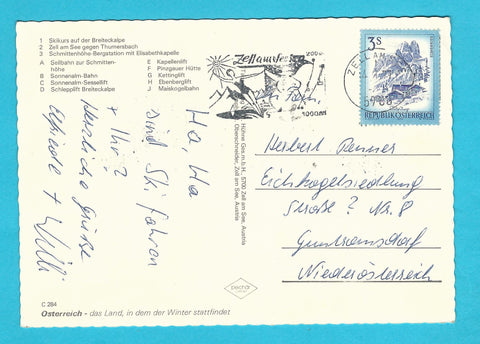 1 Skikurs auf der Breiteckalpe
2 Zell am See gegen Thumersbach
3 Schmittenhöhe-Bergstation mit Elisabethkapelle
A Seilbahn zur Schmittenhöhe
B Sonnenalm-Bahn
C Sonnenalm-Sessellift
D Schlepplift Breiteckalpe
E Kapellenlift
F Pinzgauer Hütte
G Kettinglift
H Ebenberglift
J Maiskogelbahn
Zell am See
2000
ZELL AM
5700
3 S
REPUBLIK ÖSTERREICH
Ha, Ha
sind Ski fahren
+ Ihr?
Herzliche Grüße
+ Willi
Herbert Renner
Eichkogelsiedlung
Straße 7 Nr. 8
Guntramsdorf
Niederösterreich
5700 Zell am See, Austria
Zell am See, Austria
C 284
Österreich - das Land, in dem der Winter stattfindet